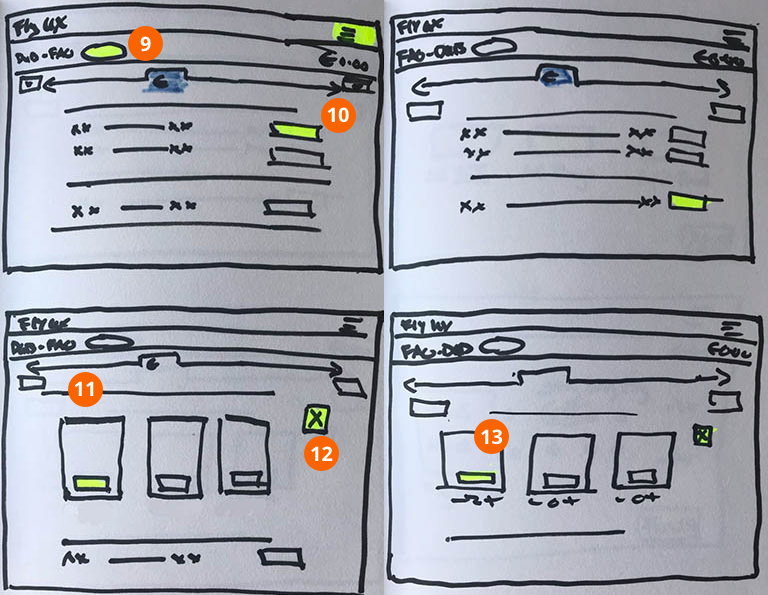 Fly UX
DUB-FAO 9
€0.00
€
10
XX XX
XX XX
XX XX
FLY UX
FAO-DUB
€
XX XX
XX XX
XX XX
FLY UX
DUB-FAO
€
11
X
12
XX XX
FLY UX
FAO-DUB
€0.00
13
X
-2+ -0+ -0+